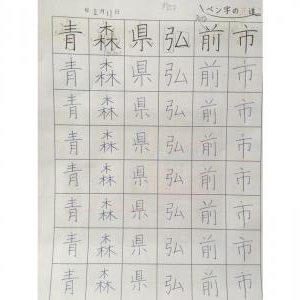 年 2月11日
ペン字の 道
青森県弘前市
青森県弘前市
青森県弘前市
青森県弘前市
青森県弘前市
青森県弘前市
青森県弘前市
青森県弘前市